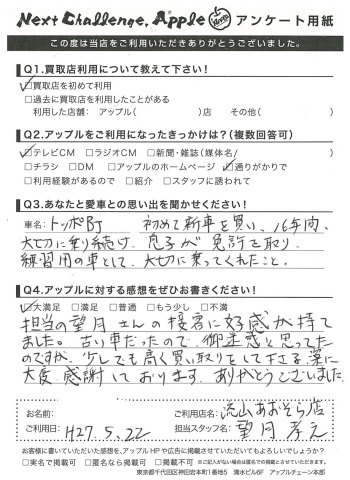 Next Challenge, Apple アンケート用紙
この度は当店をご利用いただきありがとうございました。
Q1.買取店利用について教えて下さい!
☑買取店を初めて利用
□過去に買取店を利用したことがある
利用した店舗: アップル( )店 その他( )
Q2.アップルをご利用になったきっかけは?(複数回答可)
☑テレビCM □ラジオCM □新聞・雑誌(媒体名 )
□チラシ □DM □アップルのホームページ ☑通りがかりで
□利用経験があるので □紹介 □スタッフに誘われて
Q3.あなたと愛車との思い出を聞かせください!
車名: トッポBJ 初めて新車を買い、16年間、
大切に乗り続け、息子が免許を取り、
練習用の車として、大切に乗ってくれたこと。
Q4.アップルに対する感想をぜひお書きください!
☑大満足 □満足 □普通 □もう少し □不満
担当の望月さんの接客に好感が持て
ました。古い車だったので、御迷惑と思ってた
のですが、少しでも高く買い取りをして下さる姿に
大変感謝しております。ありがとうございました
お名前: ご利用店名: 流山おおぞら店
ご利用日: H27.5.22 担当スタッフ名: 望月
お客様に書いていただいた感想を、アップルHPや広告に掲載させていただいてもよろしいでしょうか?
□実名で掲載可 □匿名なら掲載可 □掲載不可 ※ご記入がない場合は匿名での掲載とさせていただきます。
東京都千代田区神田岩本町1番地5 清水ビル6F アップルチェーン本部